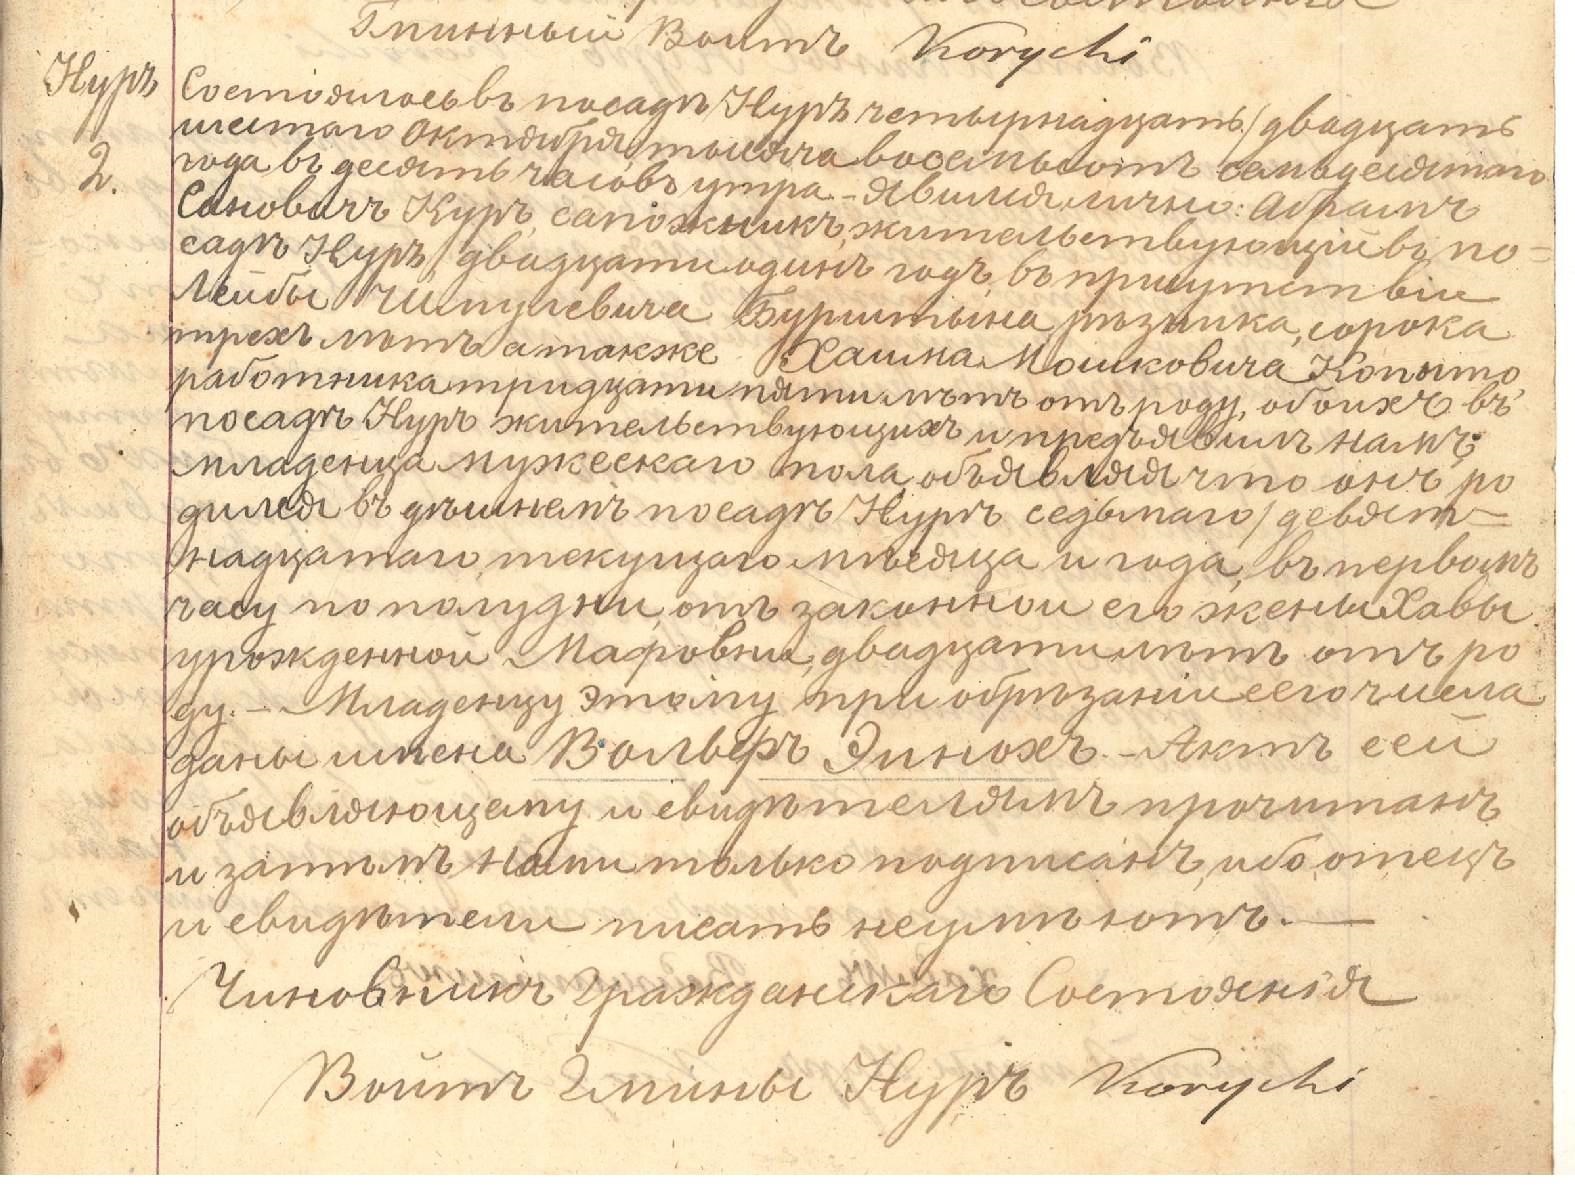 Гминный Войтъ Korycki
Нуръ
2.
Состоялось въ посадѣ Нурѣ четырнадцать / двадцать
шестаго Октября тысяча восемьсотъ семьдесятаго
года въ десять часовъ утра – явился лично: Абрамъ
Сановичъ Куръ, сапожникъ, жительствующій въ по=
садѣ Нуръ, двадцати одинъ годъ, въ присутствіи
Лейбы Шмулевича Бурштына рѣзника, сорока
трехъ лѣтъ а также Хаима Мошковича Копыто
работника тридцати пяти лѣтъ отъ роду, обоихъ въ
посадѣ Нуръ жительствующихъ и предъявилъ намъ
младенца мужескаго пола, объявляя что онъ ро
дился въ здѣшнемъ посадѣ Нурѣ седьмаго / девят=
надцатаго, текущаго мѣсяца и года, въ первомъ
часу по полудни, отъ законной его жены Хавы
урожденной Мафовны, двадцати лѣтъ отъ ро
ду. – Младенцу этому при обрѣзаніи сего числа
даны имена Вольверъ Эинохъ. – Актъ сей
объявляющему и свидѣтелямъ прочитанъ
и затѣмъ нами только подписанъ, ибо отецъ
и свидѣтели писать неумѣютъ. –
Чиновникъ Гражданскаго Состоянія
Войтъ Гмины Нуръ Korycki